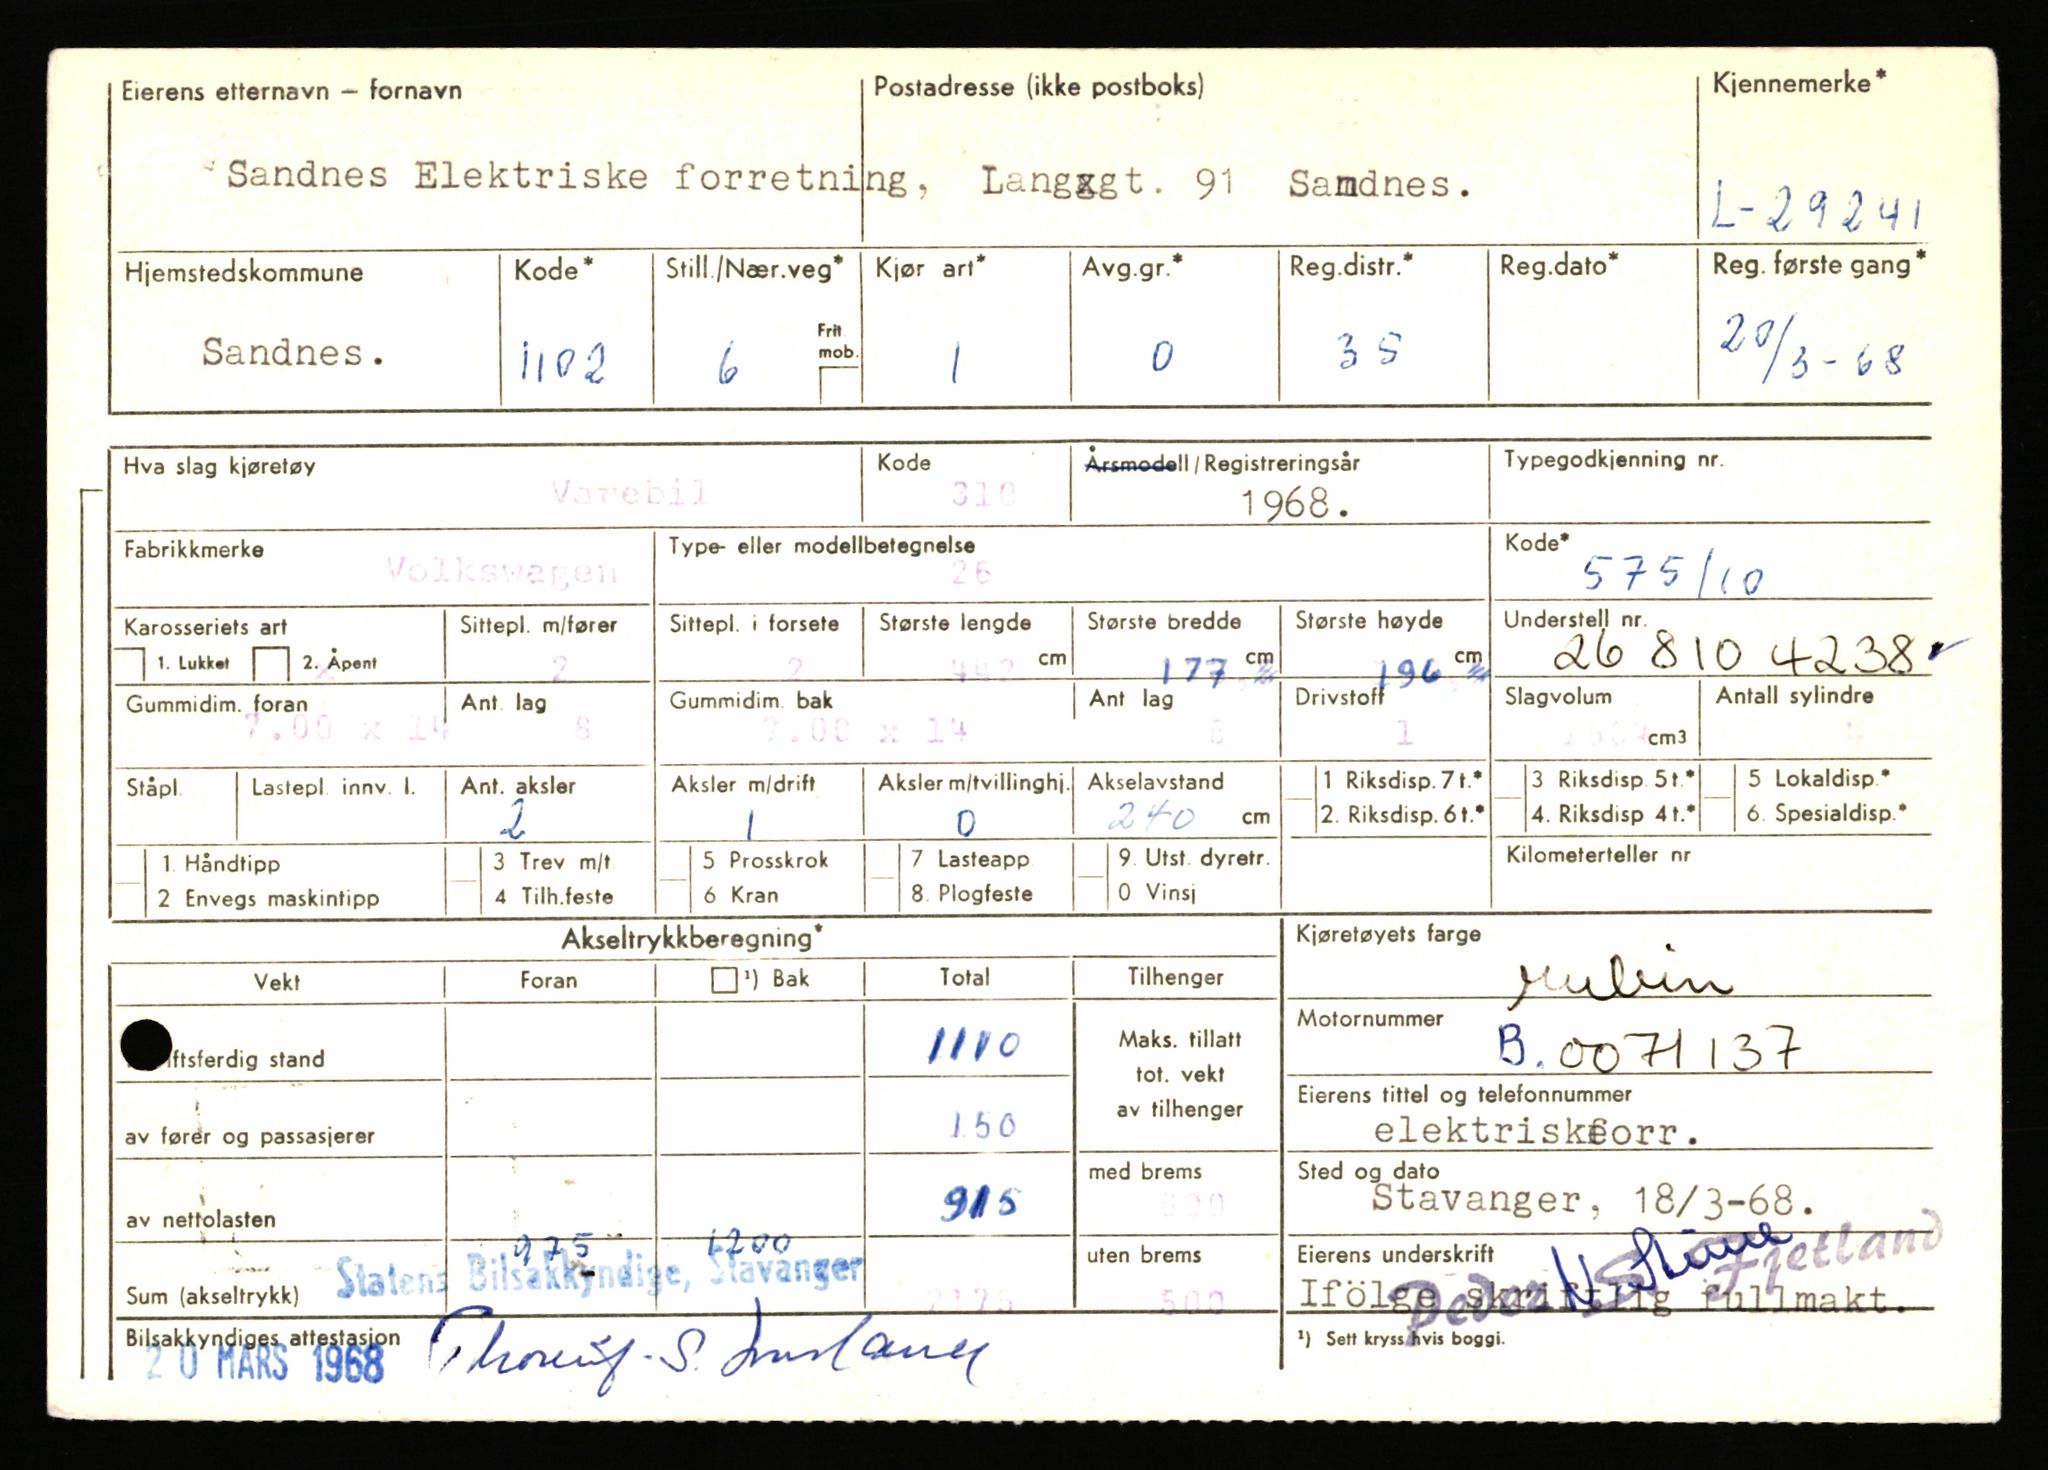 Eierens etternavn – fornavn Postadresse (ikke postboks) Kjennemerke*
Sandnes Elektriske forretning, Langgt. 91 Sandnes.
L-29241
Hjemstedskommune Kode* Still./Nær.veg* Kjør art* Avg.gr.* Reg.distr.* Reg.dato* Reg. første gang*
Frit mob.
Sandnes. 1102 6 1 0 35 20/3-68
Hva slag kjøretøy Kode Årsmodell/Registreringsår Typegodkjenning nr.
Varebil 310 1968.
Fabrikkmerke Type- eller modellbetegnelse Kode*
Volkswagen 26 575/10
Karosseriets art Sittepl. m/fører Sittepl. i forsete Største lengde Største bredde Største høyde Understell nr.
1. Lukket 2. Åpent 2 2 442 cm 177 cm 196 cm 26 810 4238
Gummidim. foran Ant. lag Gummidim. bak Ant lag Drivstoff Slagvolum Antall sylindre
7.00 x 14 8 7.00 x 14 8 1 cm3 4
Ståpl. Lastepl. innv. l. Ant. aksler Aksler m/drift Aksler m/tvillinghj. Akselavstand 1 Riksdisp. 7 t.* 3 Riksdisp. 5 t.* 5 Lokaldisp.*
2 1 0 240 cm 2. Riksdisp. 6 t.* 4. Riksdisp 4 t.* 6. Spesialdisp.*
1. Håndtipp 3 Trev m/t 5 Prosskrok 7 Lasteapp 9. Utst. dyretr. Kilometerteller nr
2 Envegs maskintipp 4 Tilh.feste 6 Kran 8. Plogfeste 0 Vinsj
Akseltrykkberegning* Kjøretøyets farge
Vekt Foran ¹) Bak Total Tilhenger rubin
iftsferdig stand 1110 Maks. tillatt tot. vekt av tilhenger
Motornummer
B. 0071137
Eierens tittel og telefonnummer
av fører og passasjerer 150 elektriskforr.
med brems Sted og dato
av nettolasten 915 600 Stavanger, 18/3-68.
975 1200 uten brems Eierens underskrift
Statens Bilsakkyndige, Stavanger Peder Fjetland
Sum (akseltrykk) 2175 500 Ifölge skriftlig fullmakt.
Bilsakkyndiges attestasjon ¹) Sett kryss hvis boggi.
20 MARS 1968